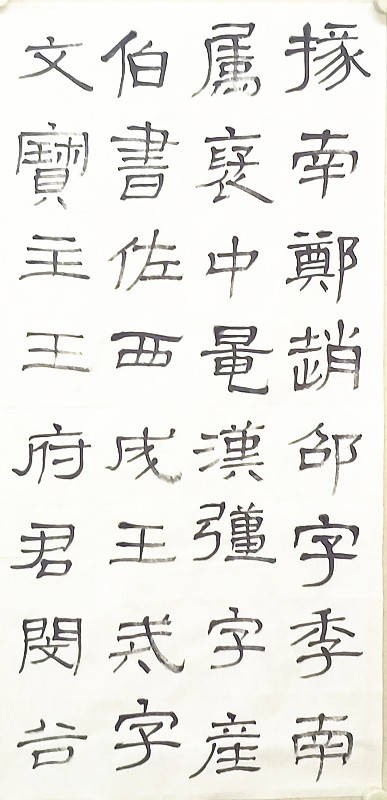 掾南鄭趙邵字季南
属褒中鼂漢彊字産
伯書佐西成王戒字
文寶主王府君閔谷